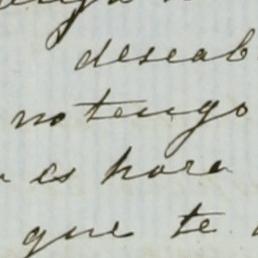 deseab
no tengo
es hora
que te